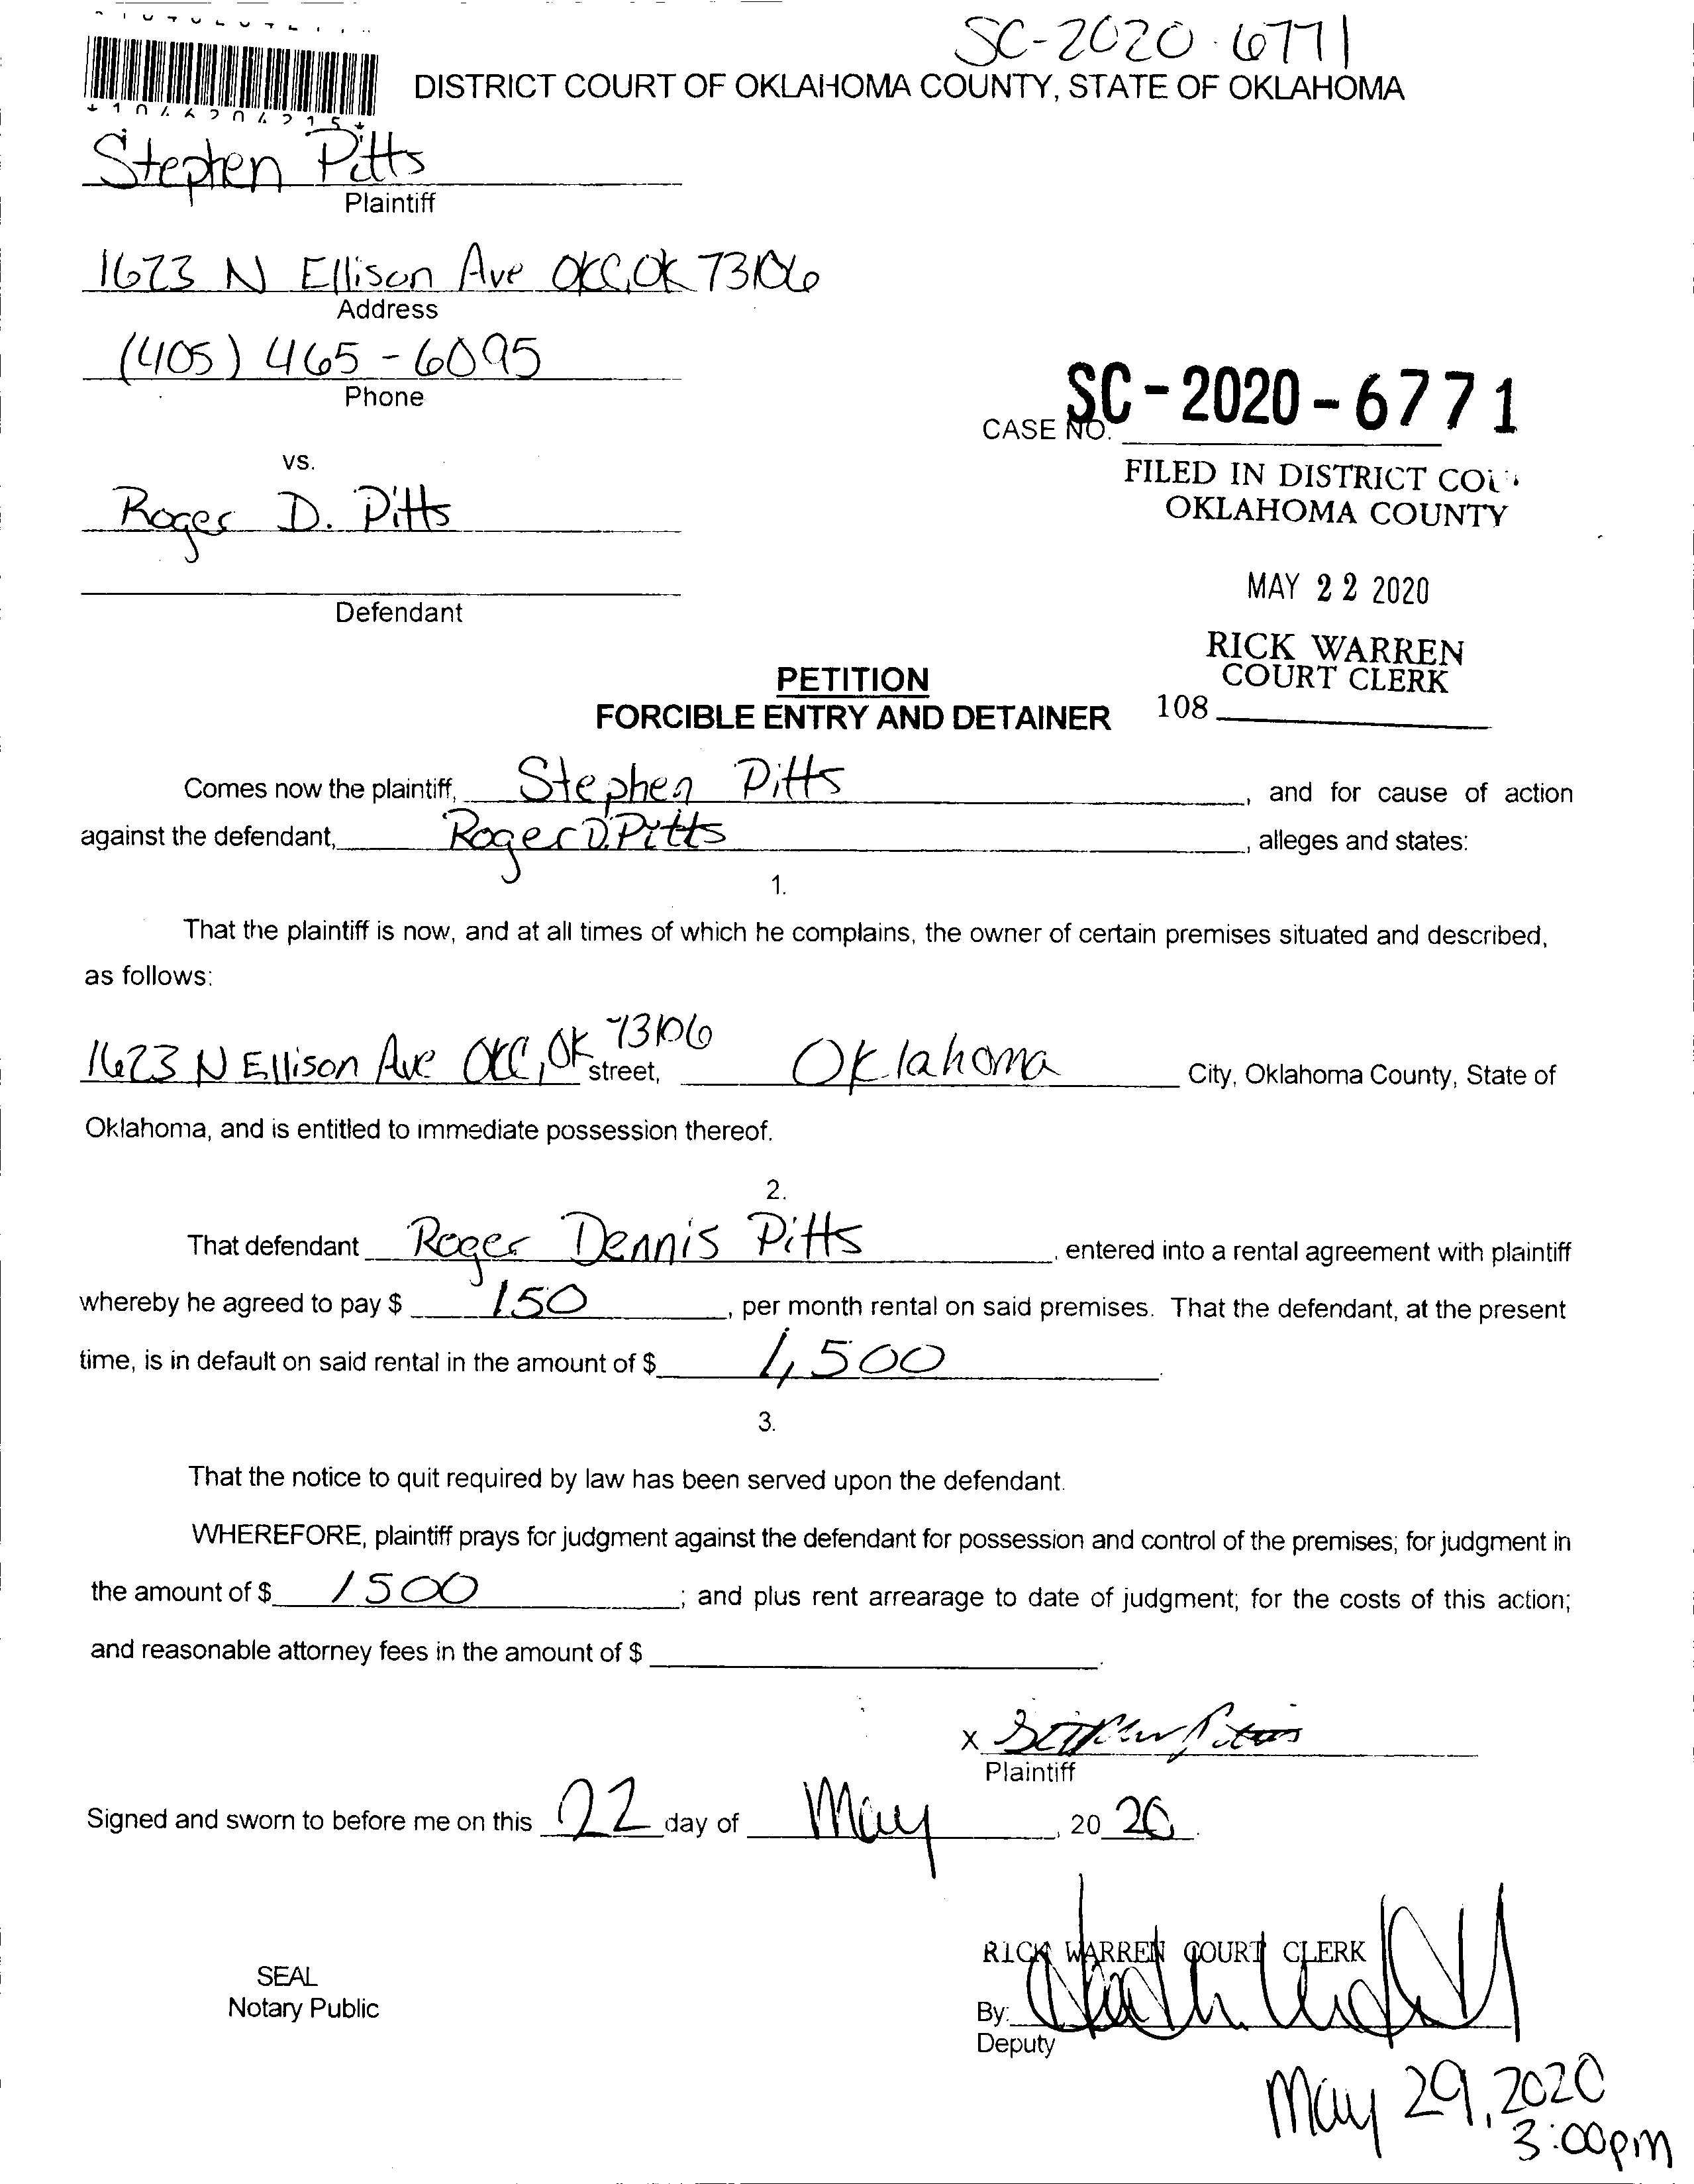 SC-2020-6771
DISTRICT COURT OF OKLAHOMA COUNTY, STATE OF OKLAHOMA
Stephen Pitts
Plaintiff
1623 N Ellison Ave OKC, OK 73106
Address
(405) 465-6095
Phone
CASE NO. SC-2020-6771
FILED IN DISTRICT
OKLAHOMA COUNTY
vs.
Roger D. Pitts
MAY 22 2020
Defendant
RICK WARREN
COURT CLERK
108
PETITION
FORCIBLE ENTRY AND DETAINER
Comes now the plaintiff, Stephen Pitts, and for cause of action
against the defendant, Roger D. Pitts, alleges and states:
1.
That the plaintiff is now, and at all times of which he complains, the owner of certain premises situated and described,
as follows:
1623 N Ellison Ave OKC, OK 73106 street, Oklahoma City, Oklahoma County, State of
Oklahoma, and is entitled to immediate possession thereof.
2.
That defendant Roger Dennis Pitts, entered into a rental agreement with plaintiff
whereby he agreed to pay $ 150, per month rental on said premises. That the defendant, at the present
time, is in default on said rental in the amount of $ 1,500.
3.
That the notice to quit required by law has been served upon the defendant.
WHEREFORE, plaintiff prays for judgment against the defendant for possession and control of the premises; for judgment in
the amount of $ 1500; and plus rent arrearage to date of judgment; for the costs of this action;
and reasonable attorney fees in the amount of $.
X
Plaintiff
Signed and sworn to before me on this 22 day of May, 2020.
RICK WARREN COURT CLERK
SEAL
Notary Public
By:
Deputy
May 29, 2020
3:00pm